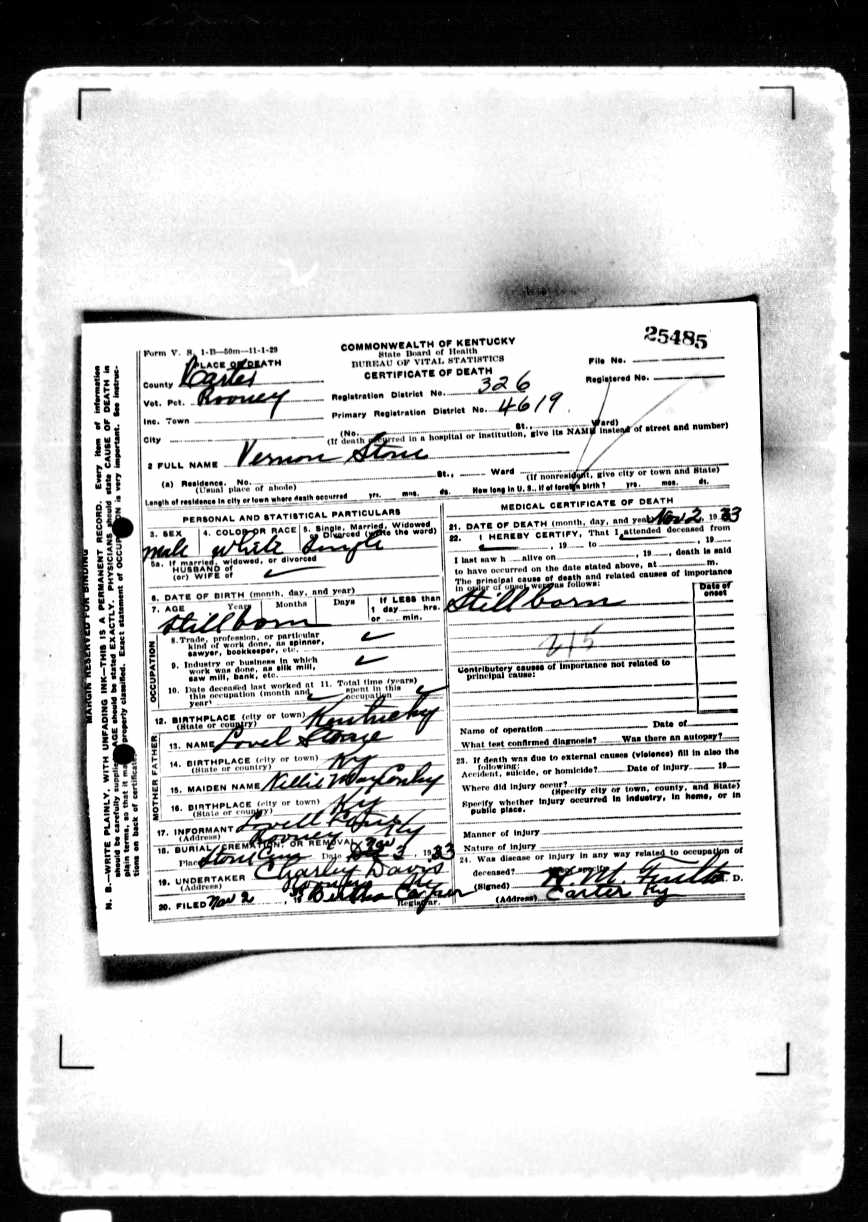 25485
Form V. S. 1-B—50m—11-1-29
COMMONWEALTH OF KENTUCKY
State Board of Health
BUREAU OF VITAL STATISTICS
CERTIFICATE OF DEATH
PLACE OF DEATH
County Carter
Vot. Pct. Rooney
Inc. Town
City
File No.
Registered No.
Registration District No. 326
Primary Registration District No. 4619
(No. St., Ward)
(If death occurred in a hospital or institution, give its NAME instead of street and number)
2 FULL NAME Vernon Stone
(a) Residence. No. St., Ward (If nonresident, give city or town and State)
(Usual place of abode)
Length of residence in city or town where death occurred yrs. mos. ds. How long in U. S., if of foreign birth? yrs. mos. ds.
PERSONAL AND STATISTICAL PARTICULARS
3. SEX 4. COLOR OR RACE 5. Single, Married, Widowed
Divorced (write the word)
male white Single
5a. If married, widowed, or divorced
HUSBAND of
(or) WIFE of
6. DATE OF BIRTH (month, day, and year)
7. AGE Years Months Days If LESS than
1 day hrs.
or min.
Still born
OCCUPATION
8. Trade, profession, or particular
kind of work done, as spinner,
sawyer, bookkeeper, etc.
9. Industry or business in which
work was done, as silk mill,
saw mill, bank, etc.
10. Date deceased last worked at 11. Total time (years)
this occupation (month and spent in this
year) occupation
12. BIRTHPLACE (city or town) Kentucky
(State or country)
FATHER
13. NAME Lovel
14. BIRTHPLACE (city or town) Ky
(State or country)
MOTHER
15. MAIDEN NAME Nellie May Conley
16. BIRTHPLACE (city or town) Ky
(State or country)
17. INFORMANT Lovell
(Address) Rooney Ky
18. BURIAL, CREMATION, OR REMOVAL Nov
Place Stone Date 3, 1933
19. UNDERTAKER Charley Davis
(Address) Ky
20. FILED Nov 2, 19 Bertha
Registrar.
MEDICAL CERTIFICATE OF DEATH
21. DATE OF DEATH (month, day, and year) Nov 2 1933
22. I HEREBY CERTIFY, That I attended deceased from
, 19 to , 19
I last saw h alive on , 19 , death is said
to have occurred on the date stated above, at m.
The principal cause of death and related causes of importance
in order of onset were as follows:
Date of
onset
Still born
215
Contributory causes of importance not related to
principal cause:
Name of operation Date of
What test confirmed diagnosis? Was there an autopsy?
23. If death was due to external causes (violence) fill in also the
following:
Accident, suicide, or homicide? Date of injury 19
Where did injury occur?
(Specify city or town, county, and State)
Specify whether injury occurred in industry, in home, or in
public place.
Manner of injury
Nature of injury
24. Was disease or injury in any way related to occupation of
deceased? specify
(Signed) M. D.
(Address) Carter Ky
MARGIN RESERVED FOR BINDING
N. B.—WRITE PLAINLY, WITH UNFADING INK—THIS IS A PERMANENT RECORD. Every item of information
should be carefully supplied. AGE should be stated EXACTLY. PHYSICIANS should state CAUSE OF DEATH in
plain terms, so that it may be properly classified. Exact statement of OCCUPATION is very important. See instruc-
tions on back of certificate.